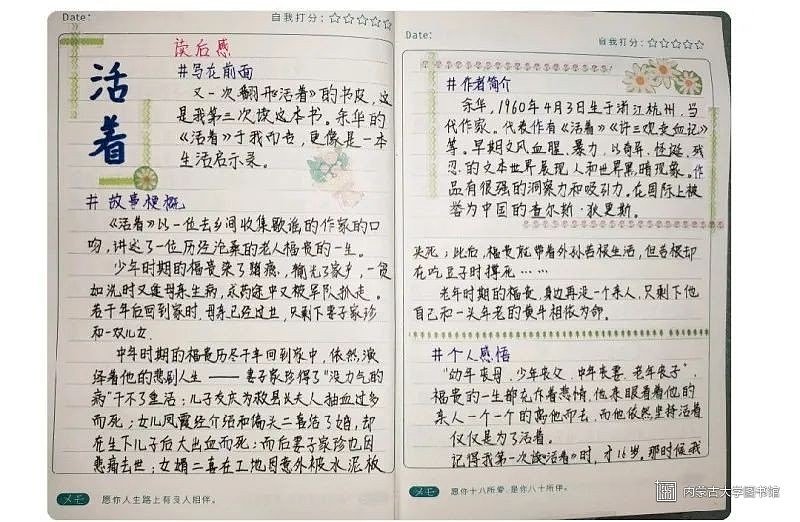 Date:
自我打分：☆☆☆☆☆
活着
读后感
#写在前面
又一次翻开《活着》的书皮，这
是我第三次读这本书。余华的
《活着》于我而言，更像是一本
生活启示录。
# 故事梗概
《活着》以一位去乡间收集歌谣的作家的口
吻，讲述了一位历经沧桑的老人福贵的一生。
少年时期的福贵染了赌瘾，输光了家产，一贫
如洗时又逢母亲生病，求药途中又被军队抓走。
若干年后回到家时，母亲已经过世，只剩下妻子家珍
和一双儿女.
中年时期的福贵历尽千辛回到家中，依然演
绎着他的悲剧人生——妻子家珍得了“没力气的
病”干不了重活；儿子友庆为救县长夫人抽血过多
而死；女儿凤霞经介绍和偏头二喜结了婚，却
在生下儿子后大出血而死；而后妻子家珍也因
悲痛去世；女婿二喜在工地因意外被水泥板
メモ 愿你人生路上有良人相伴。
Date:
自我打分：☆☆☆☆☆
#作者简介
余华，1960年4月3日生于浙江杭州，当
代作家。代表作有《活着》《许三观卖血记》
等。早期文风血腥、暴力，以奇异、怪诞、残
忍的文本世界展现人和世界黑暗现象。作
品有很强的洞察力和吸引力。在国际上被
誉为中国的查尔斯·狄更斯。
夹死；此后，福贵就带着外孙苦根生活，但苦根却
在吃豆子时撑死……
老年时期的福贵，身边再没一个亲人，只剩下他
自己和一头年老的黄牛相依为命。
#个人感悟
“幼年丧母、少年丧父、中年丧妻、老年丧子”，
福贵的一生都充斥着悲情，他亲眼看着他的
亲人一个一个的离他而去，而他依然坚持活着
仅仅是为了活着。
记得我第一次读《活着》时，才16岁。那时候我
メモ 愿你十八所爱，是你八十所伴。
内蒙古大学图书馆